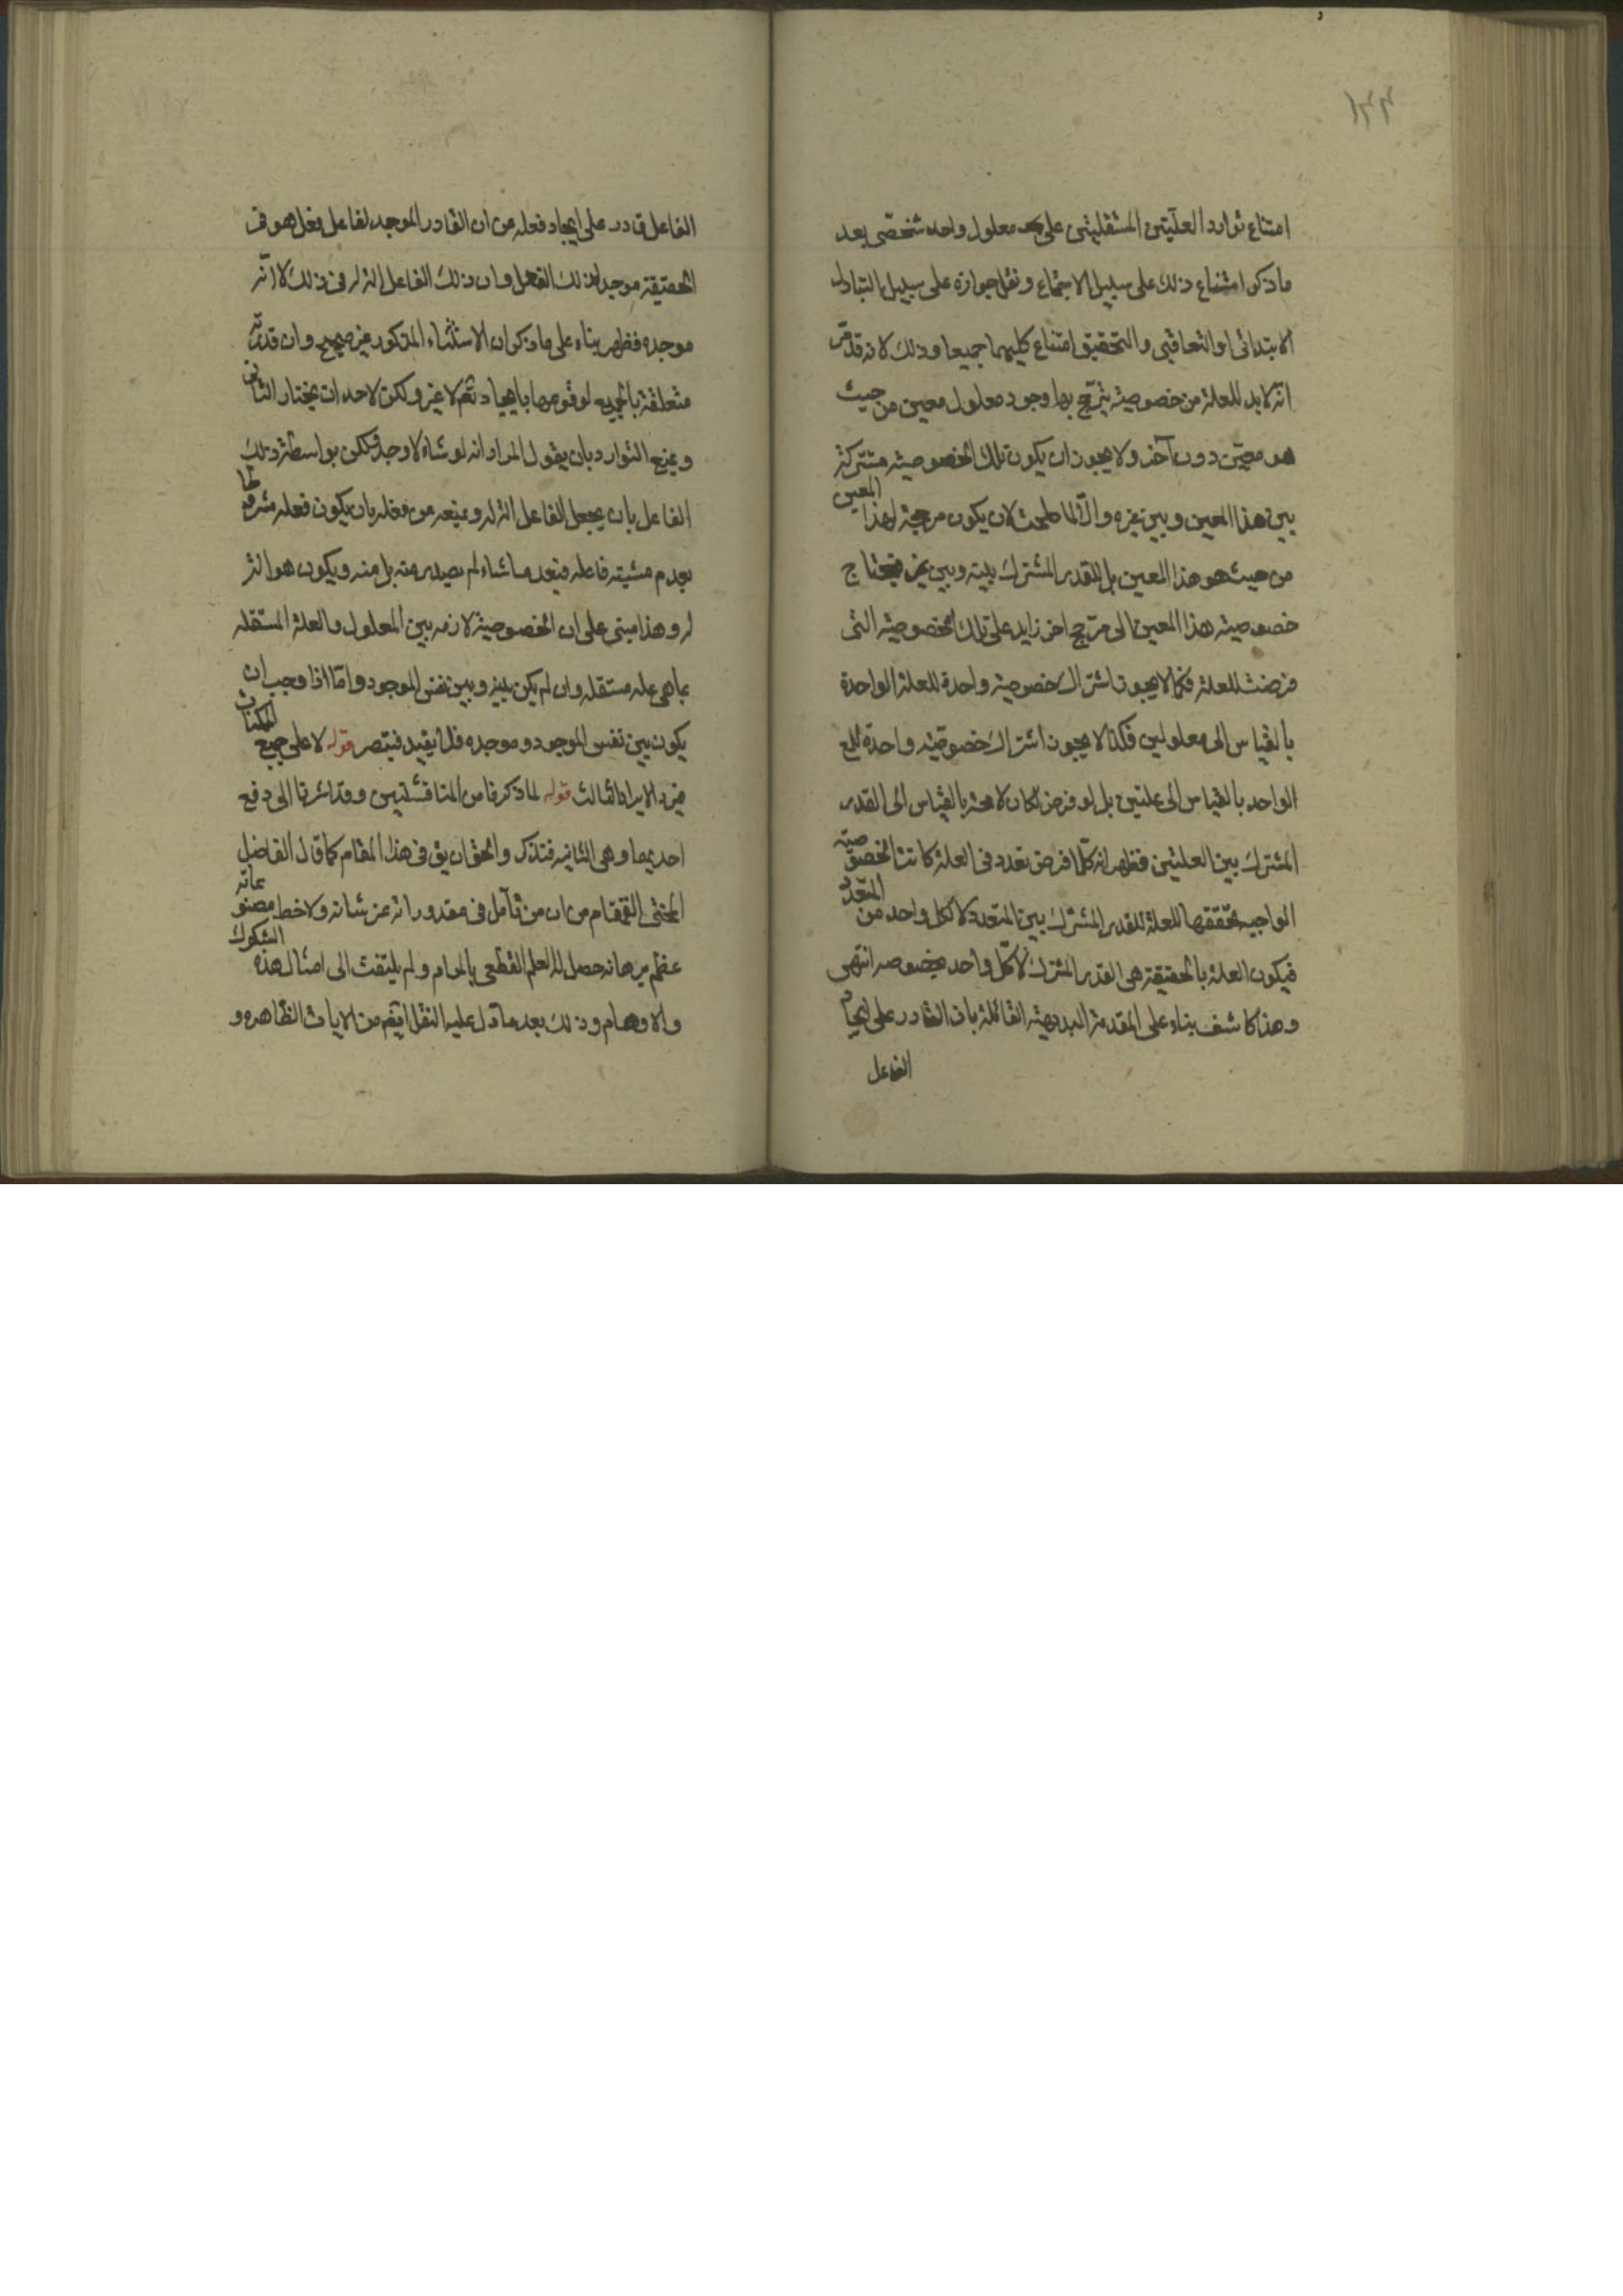 امتناع توارد العلتين المستقلتين على معلول واحد شخصى بعد
ما ذكر امتناع ذلك على سبيل الاجتماع ونقل جوازه على سبيل التبادل
الابتدائى او التعاقبى والتحقيق امتناع كليهما جميعا وذلك لانه قد مر
انه لا بد للعلة من خصوصية يترجح بها وجود معلول معين من حيث
هو معين دون آخر ولا يجوز ان يكون تلك الخصوصية مشتركة
بين هذا المعين وبين غيره والا لما صلحت لان يكون مرجحة لهذا المعين
من حيث هو هذا المعين بل للقدر المشترك بينه وبين غيره فيحتاج
خصوصية هذا المعين الى مرجح اخر زايد على تلك الخصوصية التى
فرضت للعلة فكما لا يجوز اشتراك خصوصية واحدة للعلة الواحدة
بالقياس الى معلولين فكذا لا يجوز اشتراك خصوصية واحدة للمع
الواحد بالقياس الى علتين بل لو فرض لكان لا محة بالقياس الى القدر
المشترك بين العلتين فظهر انه كلما فرض تعدد فى العلة كانت الخصوصية
الواجب تحققها للعلة للقدر المشترك بين المتعدد لا لكل واحد من المتعدد
فيكون العلة بالحقيقة هى القدر المشترك لا كل واحد بخصوصه انتهى
وهذا كاشف بناء على المقدمة البديهية القائلة بان القادر على ايجاد
الفاعل
الفاعل قادر على ايجاد فعله من ان القادر الموجد لفاعل فعل هو فى
الحقيقة موجد لذلك الفعل وان ذلك الفاعل الة له فى ذلك لا انه
موجده فظهر بناء على ما ذكر ان الاستثناء المذكور غير صحيح وان قدرته
متعلقة بالجميع لوقوعها بايجاده تعم لا غير ولكن لاحد ان يختار الثانى
ويمنع التوارد بان يقول المراد انه لو شاء لاوجد ولكن بواسطة ذلك
الفاعل بان يجعل الفاعل الة له ويمنعه من فعله بان يكون فعله مشروطا
بعدم مشيته فاعله فبعد ما شاء لم يصدر منه بل منه ويكون هو الة
له وهذا مبنى على ان الخصوصية لازمة بين المعلول والعلة المستقله
بما هى علة مستقله وان لم يكن بينه وبين نفس الموجود واما اذا وجب ان
يكون بين نفس الموجود وموجده فلا يفيد فتبصر قوله لا على جميع الممكنات
فيرد الايراد الثالث قوله لما ذكرنا من المناقشتين وقد اشرنا الى دفع
احديهما وهى الثانيه فتذكر والحق ان يق فى هذا المقام كما قال الفاضل
المحشى القمقام من ان من تأمل فى مقدوراته عز شانه ولاحظ مصنوعاته
عظم برهانه حصل له العلم القطعى بالمرام ولم يلتفت الى امثال هذه الشكوك
والاوهام وذلك بعد ما دل عليه النقل ايضم من الايات الظاهره و